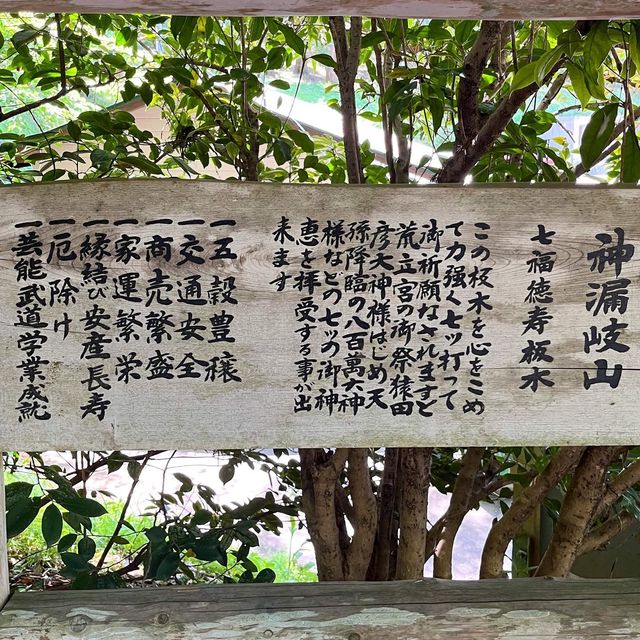 神漏岐山
七福徳寿板木
この板木を心をこめ
て力強く七ッ打って
御祈願なされますと
荒立宮の御祭猿田
彦大神様はじめ天
孫降臨の八百萬大神
様などの七ツの御神
恵を拝受する事が出
来ます
一五穀豊穣
一交通安全
一商売繁盛
一家運繁栄
一縁結び安産長寿
一厄除け
一芸能武道学業成就